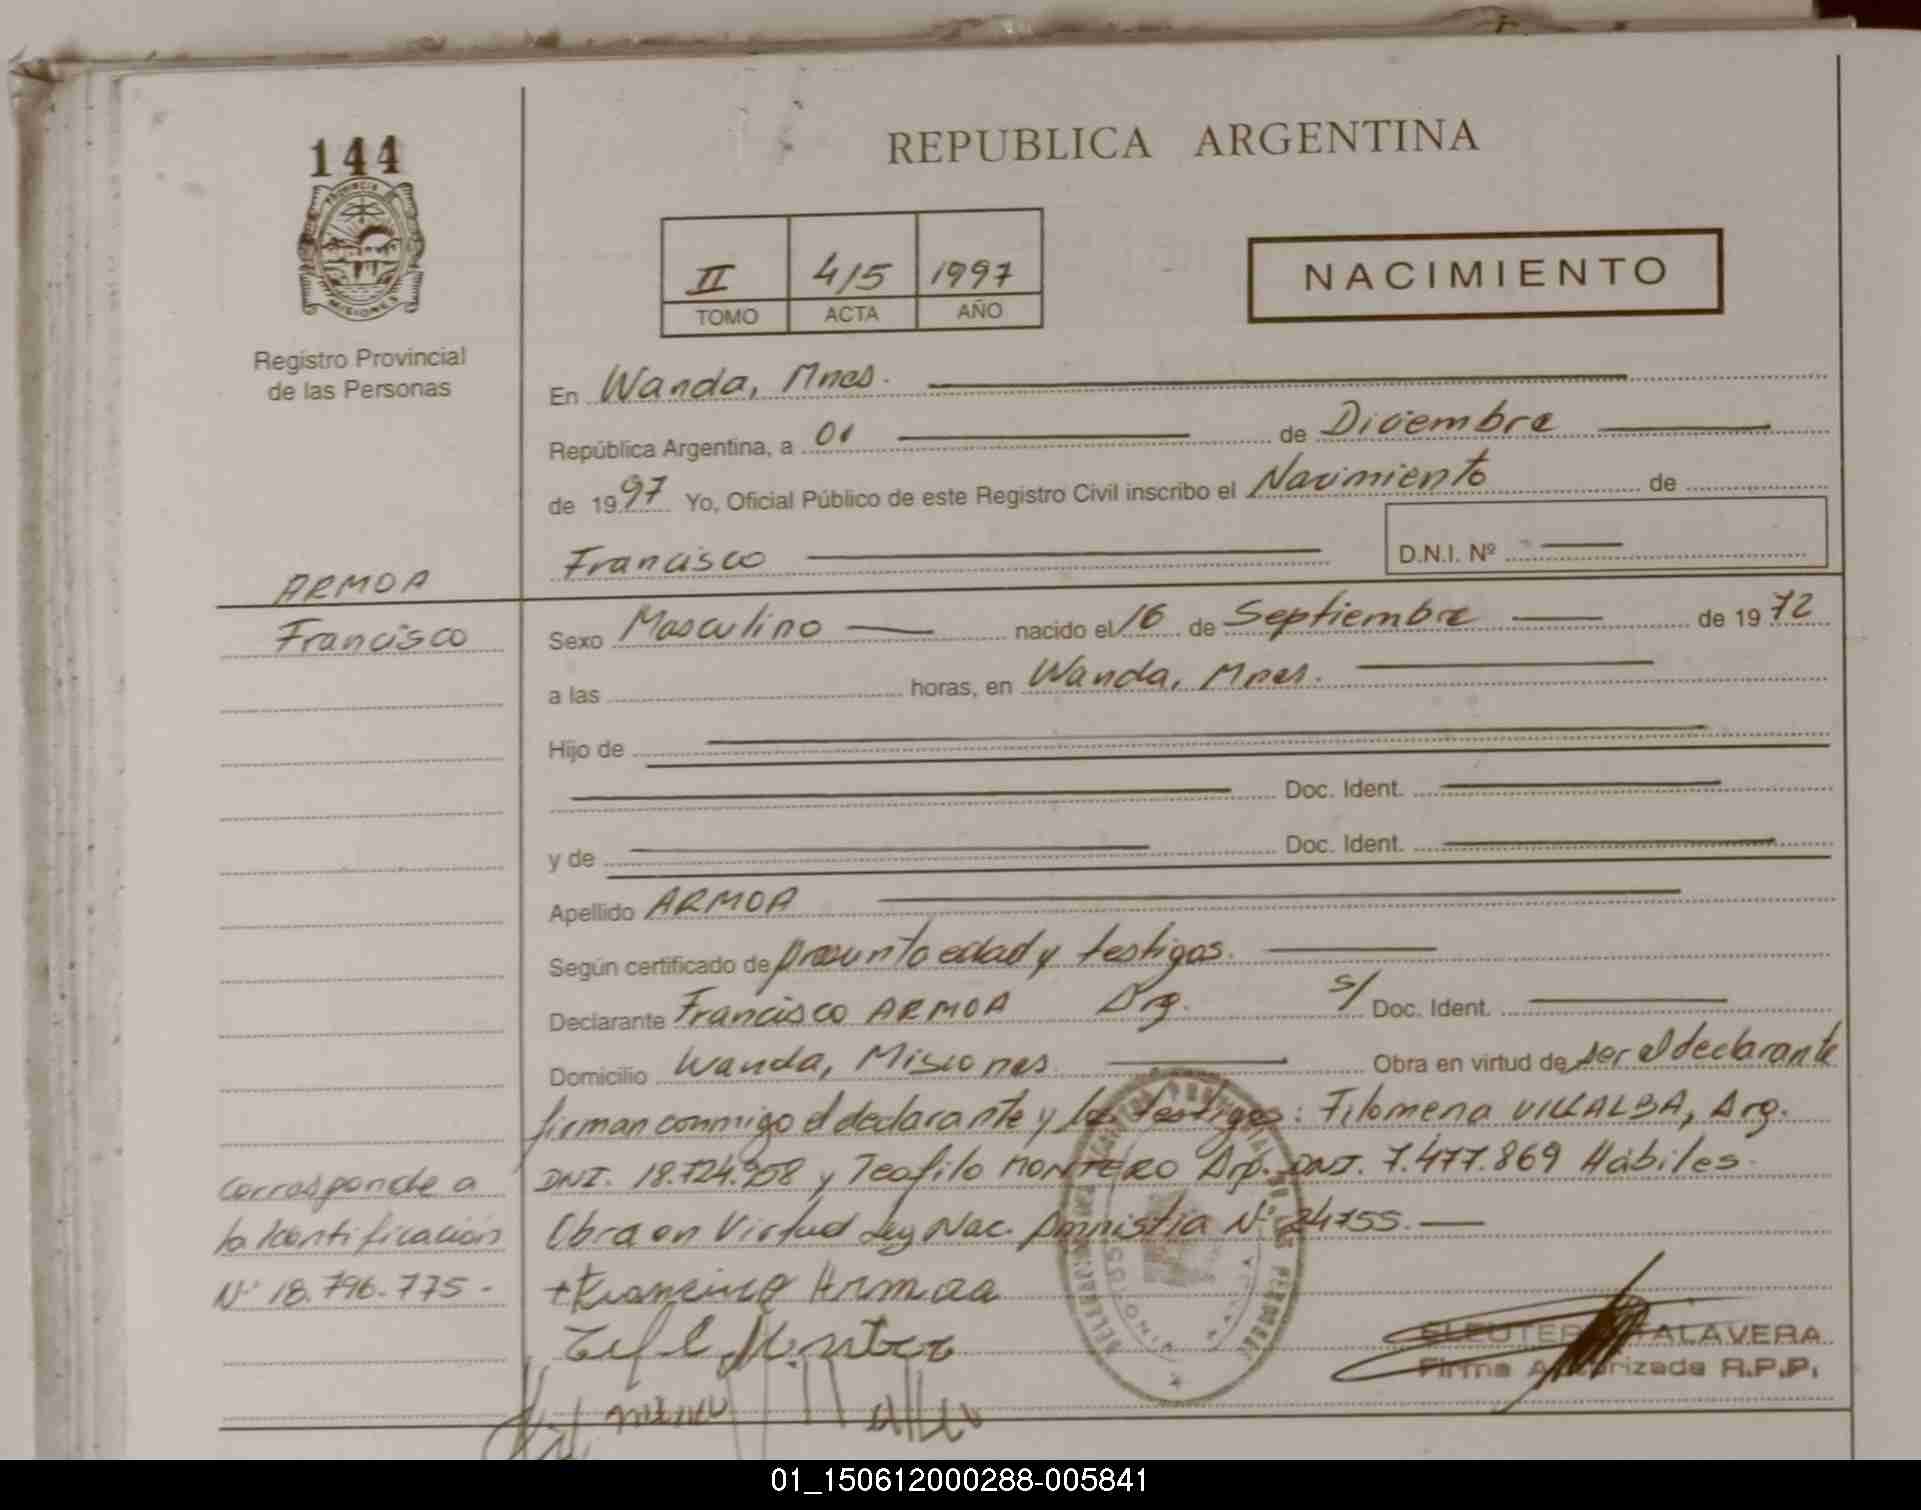 144
PROVINCIA DE
MISIONES
Registro Provincial
de las Personas
REPUBLICA ARGENTINA
II 4/5 1997
TOMO ACTA AÑO
NACIMIENTO
En Wanda, Mnes.
República Argentina, a 01 de Diciembre
de 1997 Yo, Oficial Público de este Registro Civil inscribo el Nacimiento de
Francisco D.N.I. Nº
ARMOA
Francisco
Sexo Masculino nacido el 16 de Septiembre de 1972
a las horas, en Wanda, Mnes.
Hijo de
Doc. Ident.
y de Doc. Ident.
Apellido ARMOA
Según certificado de presunta edad y testigos.
Declarante Francisco ARMOA Arg. s/ Doc. Ident.
Domicilio Wanda, Misiones Obra en virtud de ser el declarante
firman conmigo el declarante y los testigos: Filomena VILLALBA, Arg.
DNI. 18.724.958 y Teofilo MONTERO Arg. DNI. 7.477.869 Hábiles
Obra en Virtud Ley Nac. Amnistia Nº 24755.
Corresponde a
la Identificación
Nº 18.796.775 -
+ Francisco Armoa
ELEUTERIO TALAVERA
Firma Autorizada R.P.P.
01_150612000288-005841